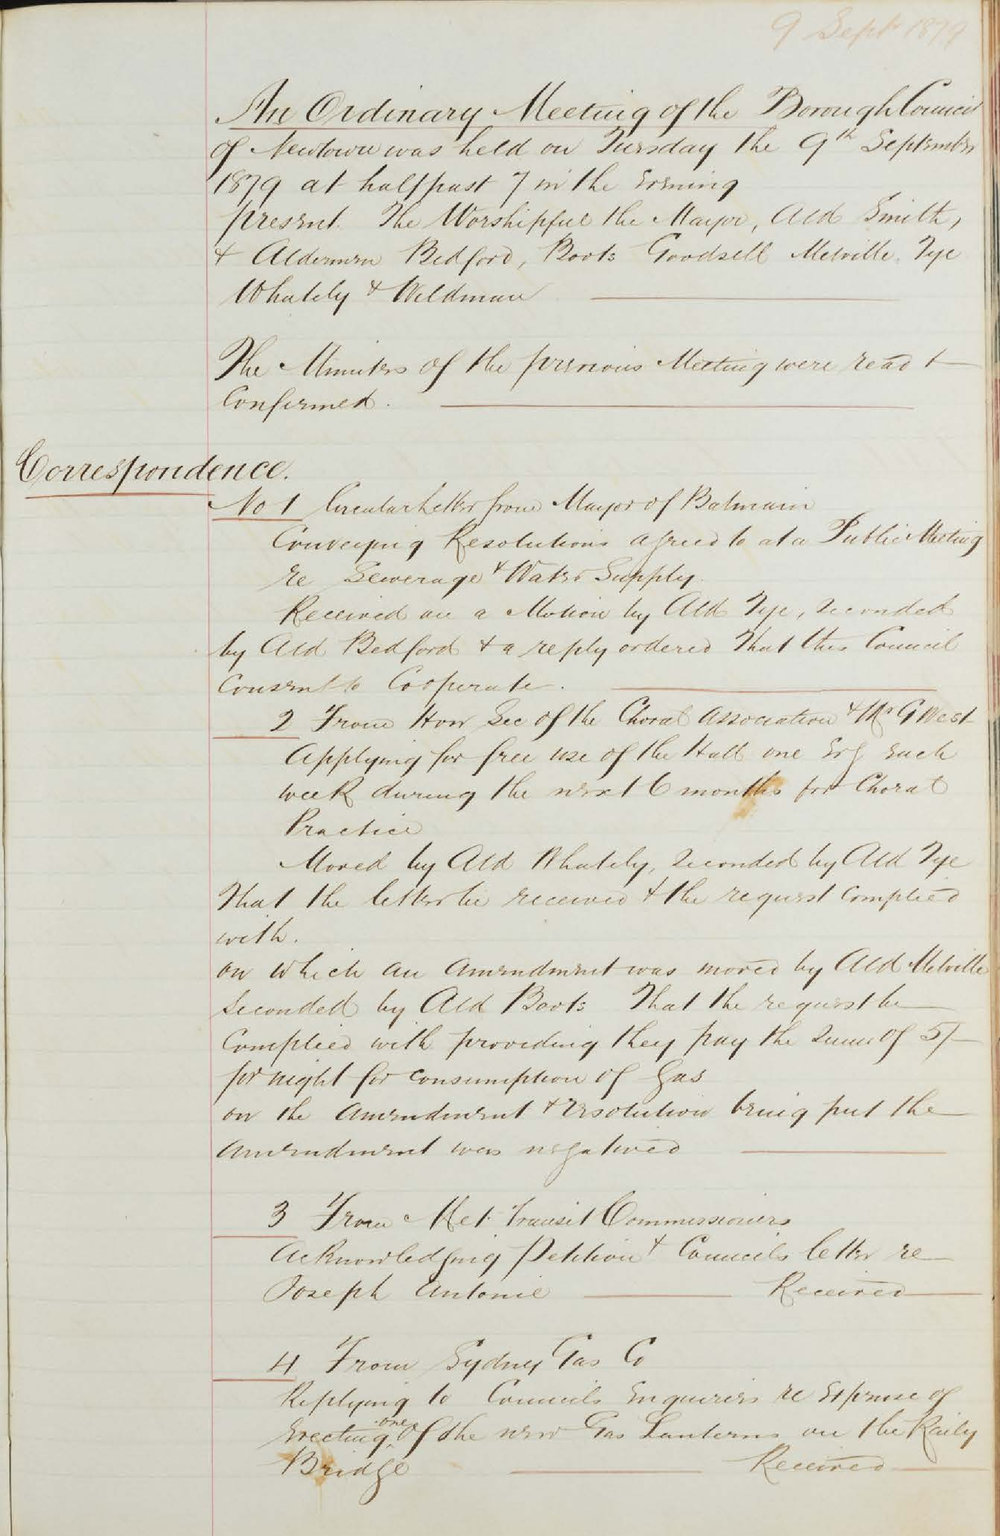 9 Sept 1879
An Ordinary Meeting of the Borough Council
of Newtown was held on Tuesday the 9th September
1879 at half past 7 in the Evening
present. The Worshipful the Mayor, Ald Smith,
& Aldermen Bedford, Boots Goodsell Melville, Tye
Whately & Wildman
The Minutes of the previous Meeting were read &
Confirmed.
Correspondence.
No 1 Circular Letter from Mayor of Balmain
Conveying Resolutions agreed to at a Public Meeting
re Sewerage & Water Supply.
Received on a Motion by Ald Tye, seconded
by Ald Bedford & a reply ordered That this Council
Consent to Cooperate.
2 From Hon Sec of the Choral Association & Mr G West
Applying for free use of the Hall one Evg each
week during the next 6 months for Choral
Practice
Moved by Ald Whately, seconded by Ald Tye
That the letter be received & the request complied
with.
on which an Amendment was moved by Ald Melville
Seconded by Ald Boots That the request be
Complied with providing they pay the sum of 5/-
per night for consumption of Gas
on the Amendment & resolution being put the
Amendment was negatived
3 From Met Transit Commissioners
Acknowledging Petition & Councils letter re
Joseph Antonie Received
4 From Sydney Gas Co
Replying to Councils Enquiries re Expense of
Erecting one of the new Gas Lanterns on the Raily
Bridge Received